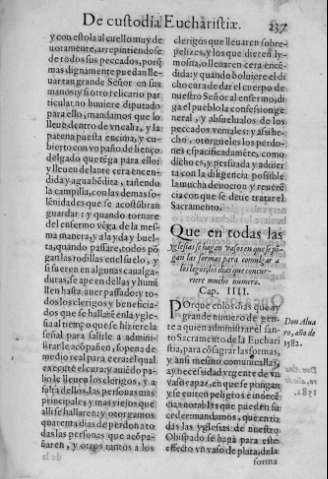 De custodia Eucharistiæ.
237
y con estola al cuello muy de
uotamente, arrepintiendose
de todos sus peccados, porq̃
mas dignamente puedan lle-
uar tan grande Señor en sus
manos: y si otro relicario par
ticular no huuiere diputado
para ello, mandamos que lo
lleue dentro de vn caliz, y la
patena puesta encima, y cu-
bierto con vn paño de lienço
delgado que tēga para ello:
y lleuen delante cera encen-
dida, y agua bēdita, tañendo
la campilla, con las demas so-
lēnidades que se acostūbran
guardar: y quando tornare
del enfermo vēga de la mes-
ma manera, y a la yda y buel-
ta, quando passare, todos pō-
gan las rodillas en el suelo, y
si fueren en algunas caualga-
duras, se apeen dellas y humi
llen hasta auer passado: y to-
dos los clerigos y beneficia-
dos que se hallarē en la ygle-
sia al tiempo que se hiziere la
señal para salir le a admini-
strar le acōpañen, so pena de
medio real para cera: el qual
execute el cura: y au
lio lleuen los clerigos, y a
falta dellos las personas mas
principales, y mas viejos que
alli se hallaren: y otorgamos
quarenta dias de perdon a to
das las personas que acōpa-
ñaren, y otros tantos a los
clerigos que lleuaren sobre-
pelizes, y los que dieren ly-
mosna, o lleuaren cera encē-
dida: y quando boluiere el di
cho cura de dar el cuerpo de
nuestro Señor al enfermo, di
ga el pueblo la confession ge
neral, y absuelualos de los
peccados veniales: y assi he-
cho, otorgueles los perdo-
nes especificadamēte, como
dicho es, y persuada y aduier
ta con la diligencia possible
la mucha deuocion, y reuerē
cia con que se deue tratar el
Sacramento.
Que en todas las
yglesias se hagan vasos en que se pō-
gan las formas para comulgar a
los legos, los dias que concur-
riere mucho numero.
Cap. IIII.
POrque en los dias que ay
grande numero de gen-
te a quien administrar el san-
to Sacramento de la Euchari
stia, para cōsagrar las formas,
y assi mesmo comunicallas,
ay necessidad vrgente de vn
vaso capaz, en que se pongan
y se euiten peligros e indecē-
cias notables que pueden su
ceder: mandamos, que en to
das las yglesias de nuestro
Obispado se haga para este
effecto vn vaso de plata, de la
forma
Don Alua
ro, año de
1582.